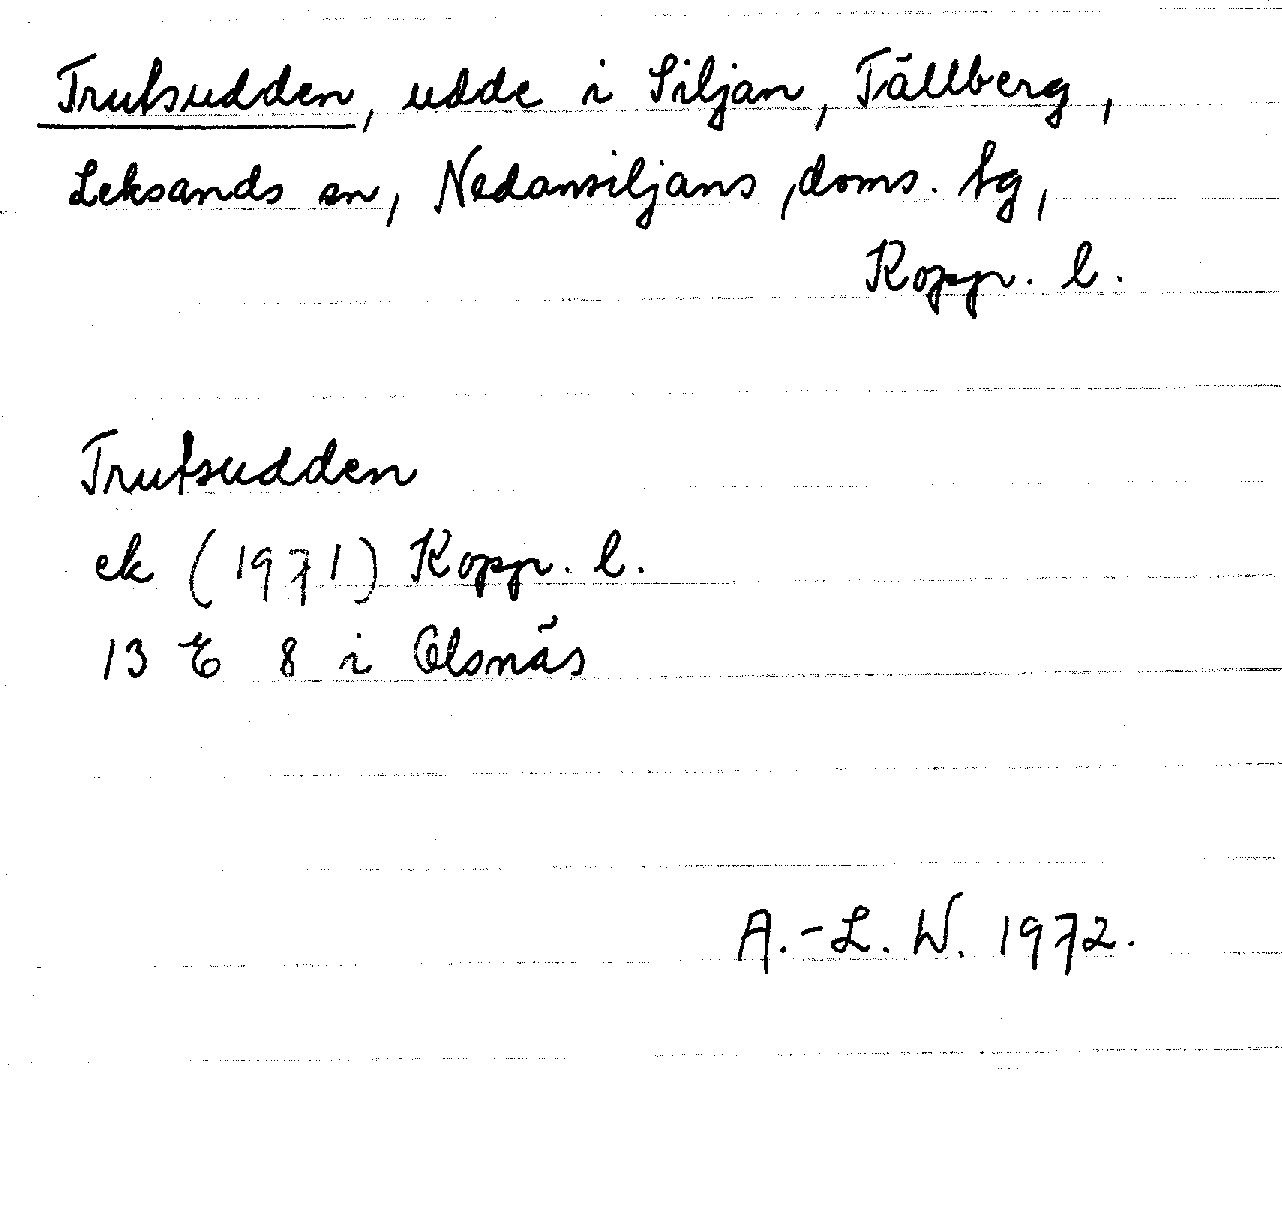 Trutsudden, udde i Siljan, Tällberg,
Leksands sn, Nedansiljans doms. tg,
Kopp. l.
Trutsudden
ek (1971) Kopp. l.
13 E 8 i Olsnäs
A.-L. W. 1972.